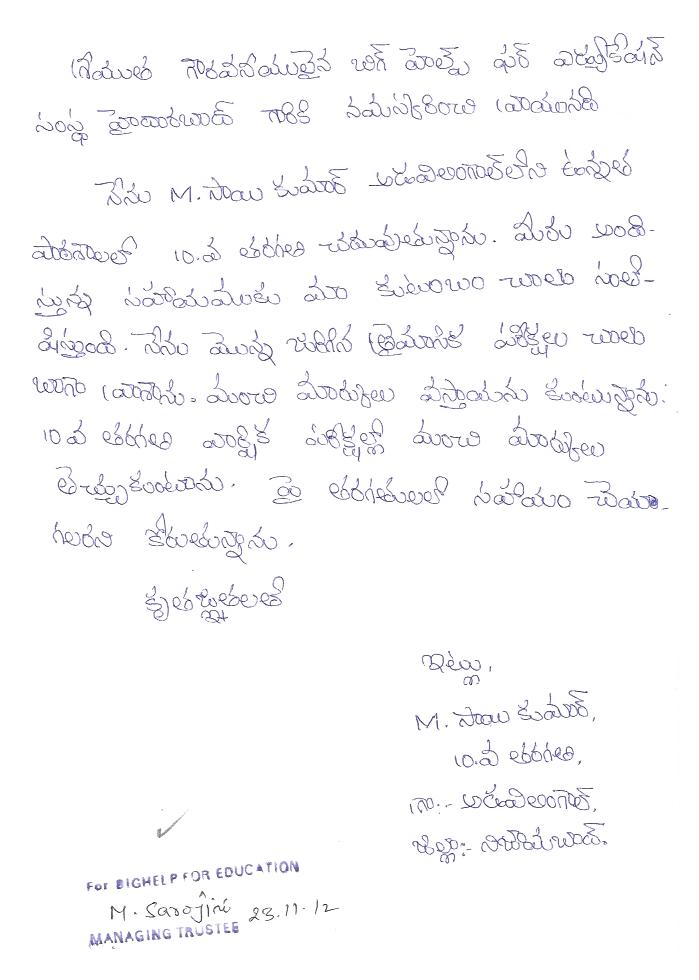 శ్రీయుత గౌరవనీయులైన బిగ్ హెల్ప్ ఫర్ ఎడ్యుకేషన్
సంస్థ హైదరాబాద్ గారికి నమస్కరించి వ్రాయునది
నేను M. సాయి కుమార్ అడవిలింగాల్‌లోని ఉన్నత
పాఠశాలలో 10.వ తరగతి చదువుతున్నాను. మీరు అంది-
స్తున్న సహాయముకు మా కుటుంబం చాలా సంతో-
షిస్తుంది. నేను మొన్న జరిగిన త్రైమాసిక పరీక్షలు చాలు
బాగా వ్రాశాను. మంచి మార్కులు వస్తాయను కుంటున్నాను.
10 వ తరగతి వార్షిక పరీక్షల్లో మంచి మార్కులు
తెచ్చుకుంటాను. పై తరగతులలో సహాయం చేయ-
గలరని కోరుతున్నాను.
కృతజ్ఞతలతో
ఇట్లు,
M. సాయి కుమార్,
10.వ తరగతి,
గ్రా:- అడవిలింగాల్,
జిల్లా:- నిజామబాద్.
For BIGHELP FOR EDUCATION
M. Sarojini 23.11.12
MANAGING TRUSTEE